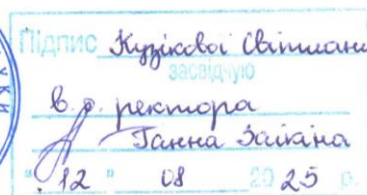 Підпис Кузікової Світлани
засвідчую
в.о. ректора
Ганна Заікіна
"12" 08 2025 р.